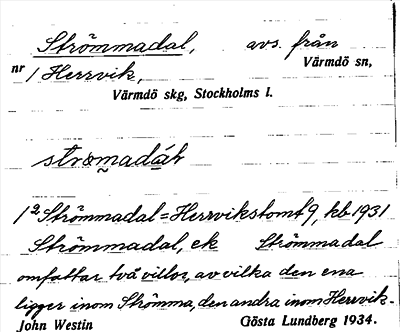 Strömmadal, avs. från
nr 1 Herrvik, Värmdö sn,
Värmdö skg, Stockholms l.
1² Strömmadal = Herrvikstomt 9, kb 1931
Strömmadal, ek Strömmadal
omfattar två villor, av vilka den ena
ligger inom Strömma, den andra inom Herrvik.
John Westin Gösta Lundberg 1934.